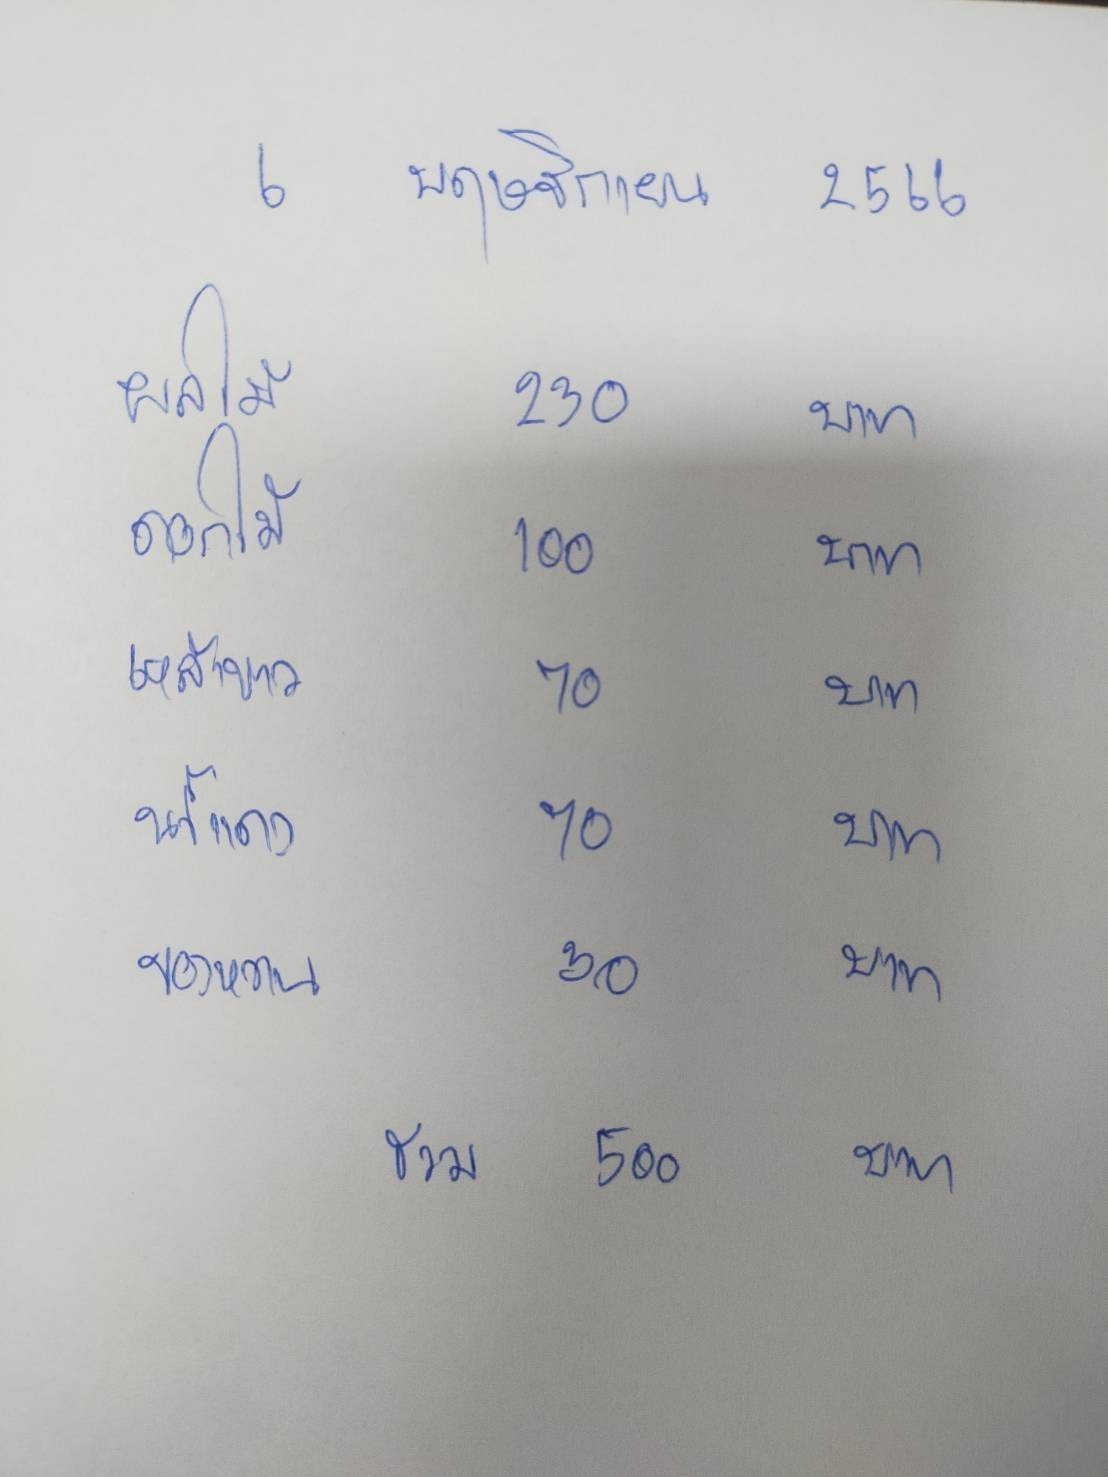 6 พฤษจิกายน 2566
ผลไม้ 230 บาท
ดอกไม้ 100 บาท
เหล้าขาว 70 บาท
น้ำแดง 70 บาท
ของหวาน 30 บาท
รวม 500 บาท